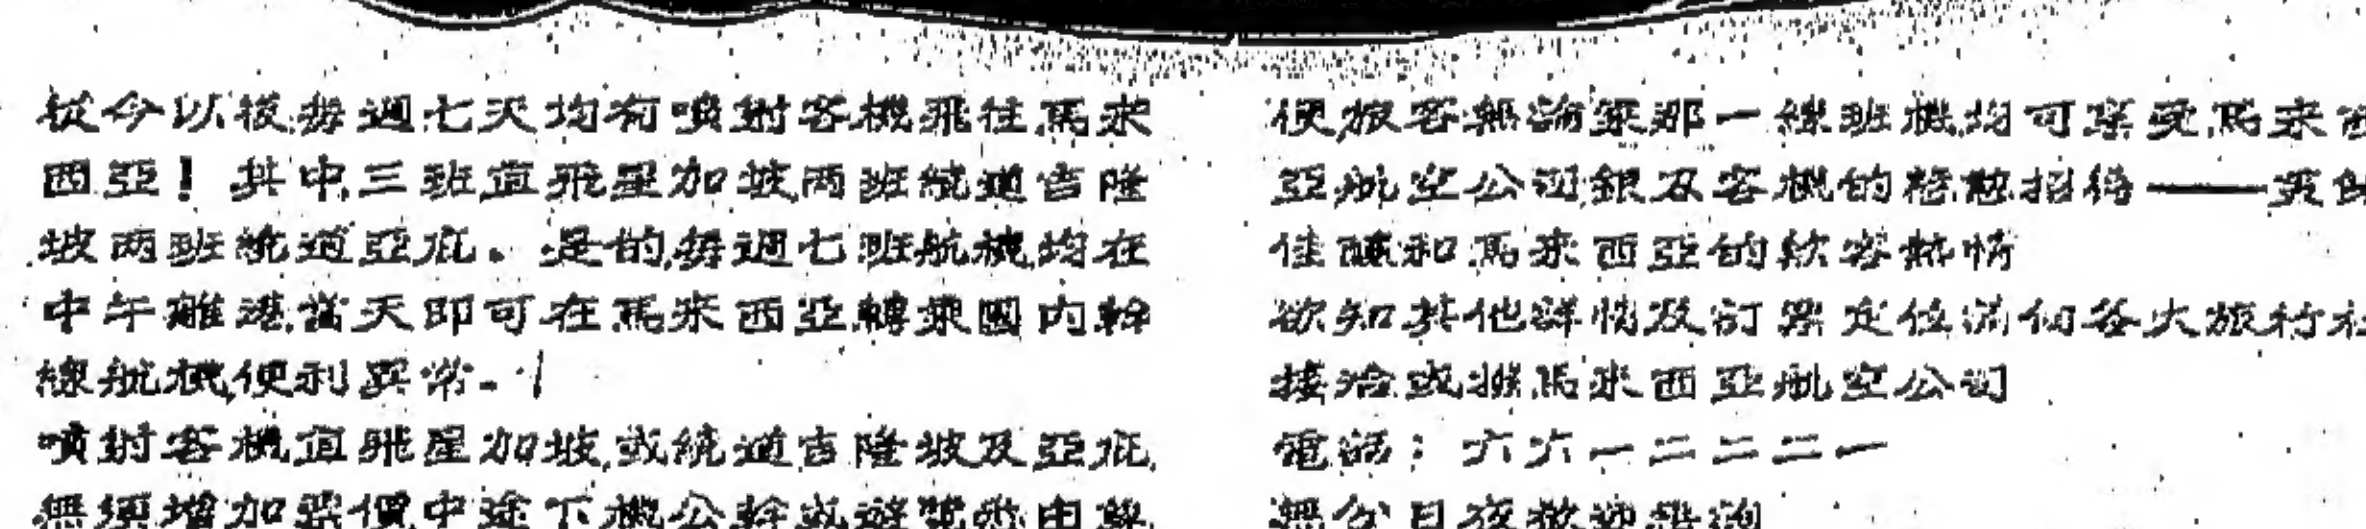 從今以後每週七天均有噴射客機飛往馬來
西亞！其中三班直飛星加坡兩班繞道吉隆
坡兩班繞道亞庇。是的每週七班航機均在
中午離港當天即可在馬來西亞轉乘國內幹
線航機便利異常。
噴射客機直飛星加坡或繞道吉隆坡及亞庇
無須增加票價中途下機公幹或遊覽悉由尊
便旅客無論乘那一線班機均可享受馬來西
亞航空公司銀刃客機的慇懃招待——美餚
佳釀和馬來西亞的款客熱情
欲知其他詳情及訂票定位請向各大旅行社
接洽或撥馬來西亞航空公司
電話：六六一二二二一
無分日夜歡迎垂詢